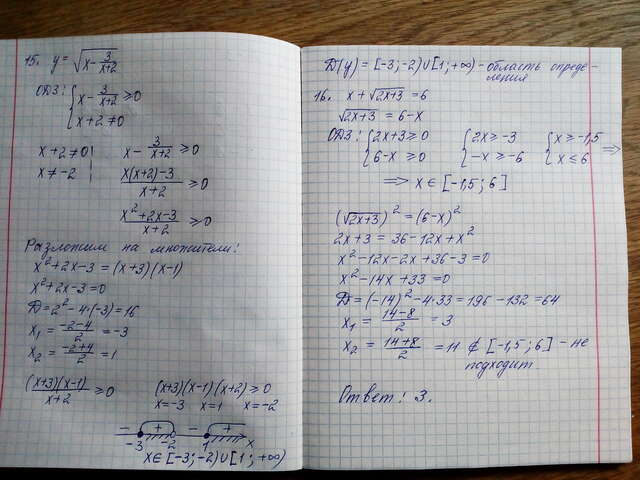 15. y = √(x - 3/(x+2))
ОДЗ: { x - 3/(x+2) ≥ 0
{ x + 2 ≠ 0
x + 2 ≠ 0 | x - 3/(x+2) ≥ 0
x ≠ -2 | (x(x+2)-3)/(x+2) ≥ 0
(x²+2x-3)/(x+2) ≥ 0
Разложим на множители:
x²+2x-3 = (x+3)(x-1)
x²+2x-3=0
D = 2²-4·(-3) = 16
x₁ = (-2-4)/2 = -3
x₂ = (-2+4)/2 = 1
((x+3)(x-1))/(x+2) ≥ 0 (x+3)(x-1)(x+2) ≥ 0
x=-3 x=1 x=-2
- + - +
-3 -2 1 x
x∈[-3;-2)∪[1;+∞)
D(y) = [-3;-2)∪[1;+∞) - область опреде-
ления
16. x + √(2x+3) = 6
√(2x+3) = 6-x
ОДЗ: { 2x+3 ≥ 0 { 2x ≥ -3 { x ≥ -1,5 ⇒
{ 6-x ≥ 0 { -x ≥ -6 { x ≤ 6
⇒ x ∈ [-1,5; 6]
(√(2x+3))² = (6-x)²
2x+3 = 36-12x+x²
x²-12x-2x+36-3=0
x²-14x+33=0
D = (-14)²-4·33 = 196-132 = 64
x₁ = (14-8)/2 = 3
x₂ = (14+8)/2 = 11 ∉ [-1,5; 6] - не
подходит
Ответ: 3.